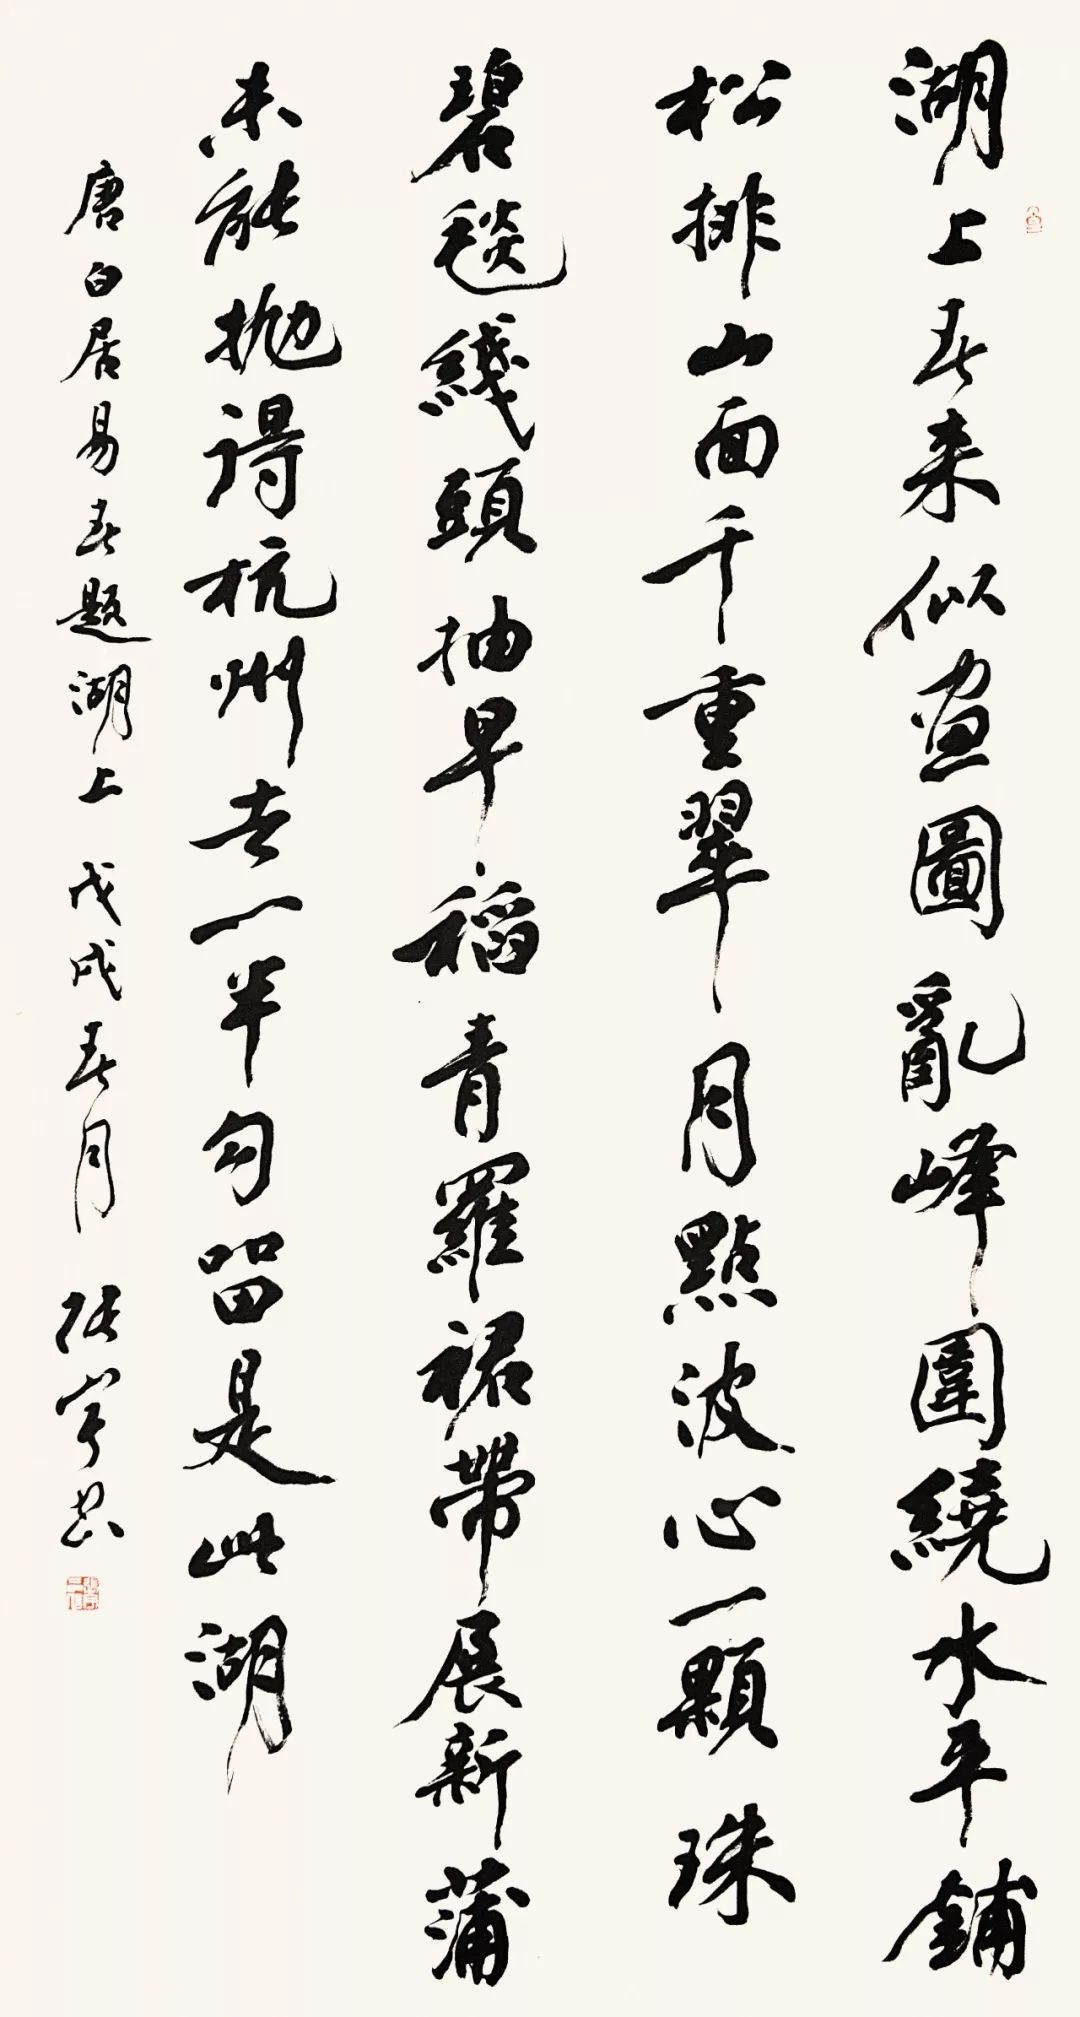 湖上春来似畫圖亂峰圍繞水平鋪
松排山面千重翠月點波心一顆珠
碧毯綫頭抽早稻青羅裙帶展新蒲
未能抛得杭州去一半勾留是此湖
唐白居易春題湖上 戊戌春月